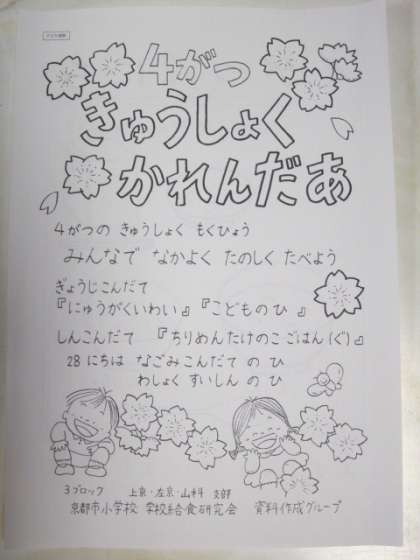 4がつ
きゅうしょく
かれんだあ
4がつの きゅうしょく もくひょう
みんなで なかよく たのしく たべよう
ぎょうじこんだて
『にゅうがくいわい』『こどものひ』
しんこんだて 『ちりめんたけのこごはん(ぐ)』
28にちは なごみこんだて の ひ
わしょく すいしん の ひ
3ブロック 上京・左京・山科 支部
京都市小学校 学校給食研究会 資料作成グループ